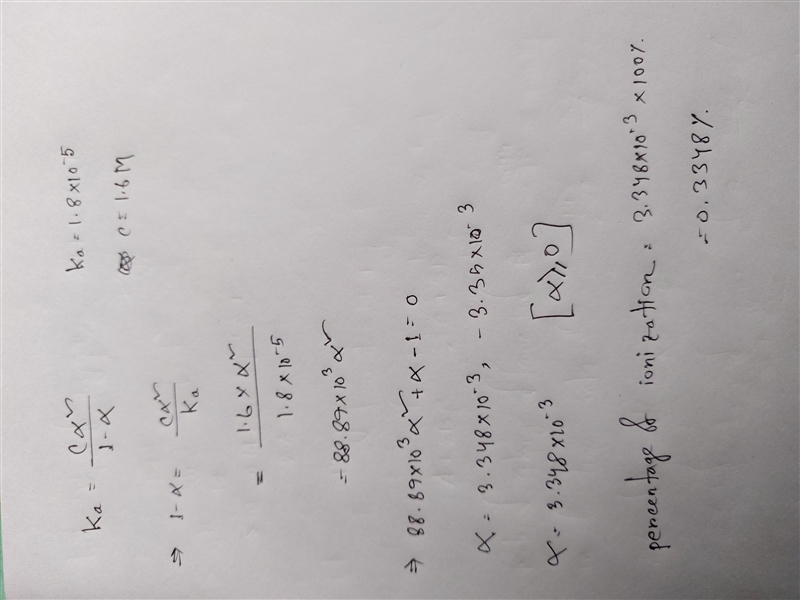 Ka = Cα²/1-α    Ka = 1.8×10⁻⁵
C = 1.6 M
⇒ 1-α = Cα²/Ka
= 1.6×α²/1.8×10⁻⁵
= 88.89×10³α²
⇒ 88.89×10³α²+α-1=0
α = 3.348×10⁻³, -3.35×10⁻³
α = 3.348×10⁻³    [α≥0]
percentage of ionization = 3.348×10⁻³ × 100%
= 0.3348%.